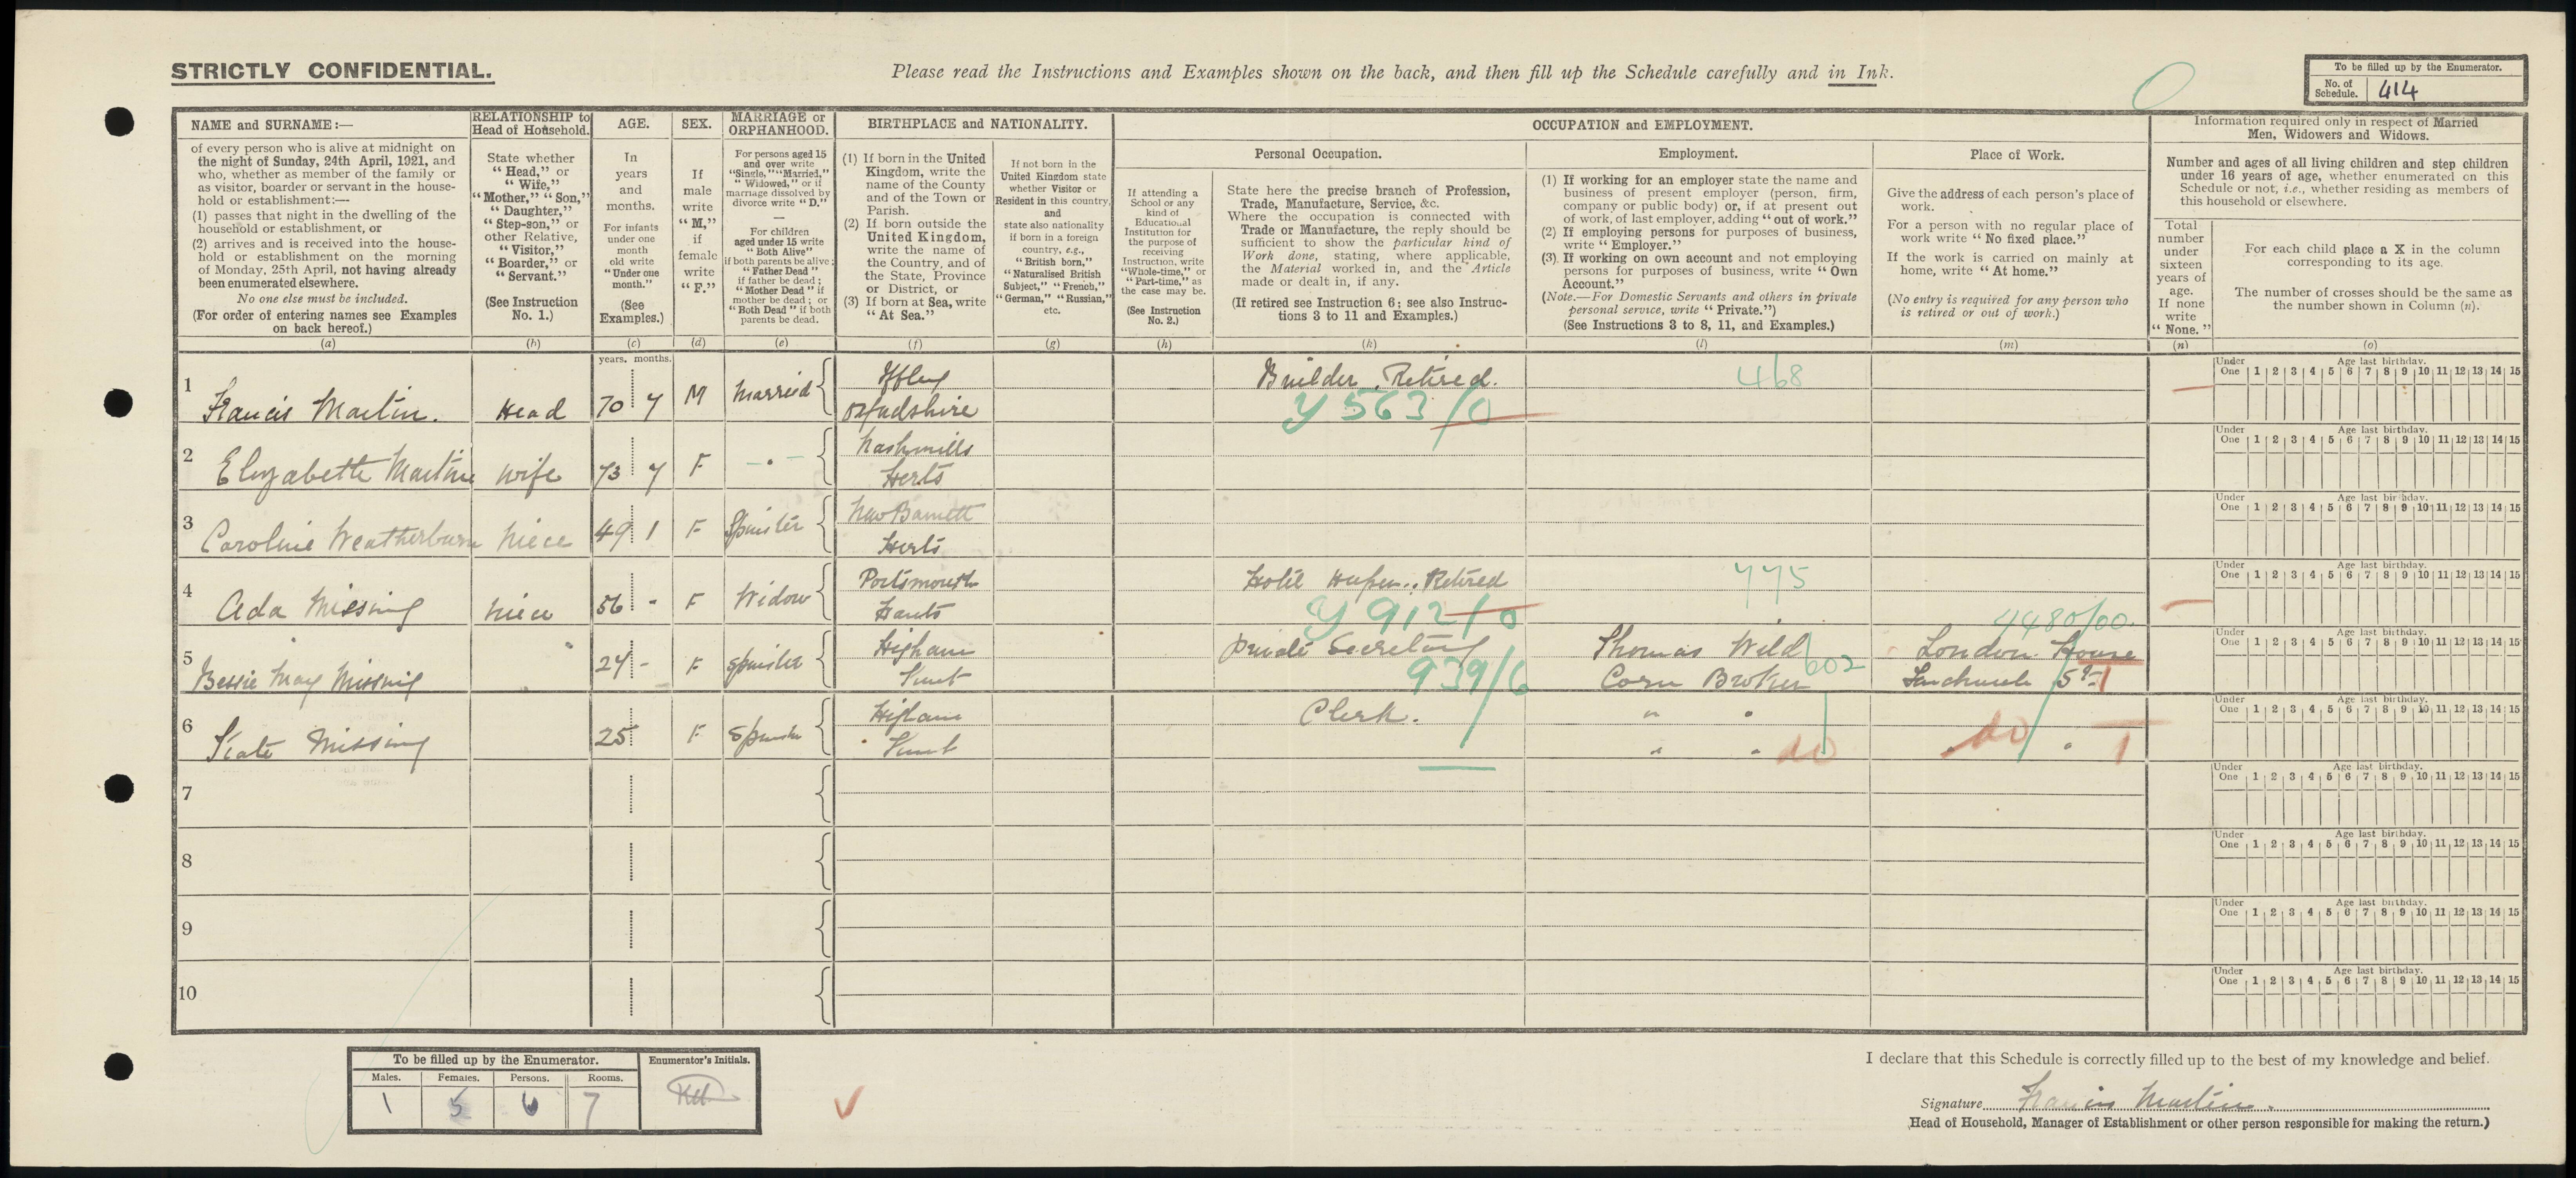 STRICTLY CONFIDENTIAL.
Please read the Instructions and Examples shown on the back, and then fill up the Schedule carefully and in Ink.
To be filled up by the Enumerator.
No. of Schedule. 414
NAME and SURNAME:—
of every person who is alive at midnight on
the night of Sunday, 24th April, 1921, and
who, whether as member of the family or
as visitor, boarder or servant in the house-
hold or establishment:—
(1) passes that night in the dwelling of the
household or establishment, or
(2) arrives and is received into the house-
hold or establishment on the morning
of Monday, 25th April, not having already
been enumerated elsewhere.
No one else must be included.
(For order of entering names see Examples
on back hereof.)
(a)
RELATIONSHIP to
Head of Household.
State whether
"Head," or
"Wife,"
"Mother," "Son,"
"Daughter,"
"Step-son," or
other Relative,
"Visitor,"
"Boarder," or
"Servant."
(See Instruction
No. 1.)
(b)
AGE.
In
years
and
months.
For infants
under one
month
old write
"Under one
month."
(See
Examples.)
(c)
SEX.
If
male
write
"M,"
if
female
write
"F."
(d)
MARRIAGE or
ORPHANHOOD.
For persons aged 15
and over write
"Single," "Married,"
"Widowed," or if
marriage dissolved by
divorce write "D."
—
For children
aged under 15 write
"Both Alive"
if both parents be alive;
"Father Dead"
if father be dead;
"Mother Dead" if
mother be dead; or
"Both Dead" if both
parents be dead.
(e)
BIRTHPLACE and NATIONALITY.
(1) If born in the United
Kingdom, write the
name of the County
and of the Town or
Parish.
(2) If born outside the
United Kingdom,
write the name of
the Country, and of
the State, Province
or District, or
(3) If born at Sea, write
"At Sea."
(f)
If not born in the
United Kingdom state
whether Visitor or
Resident in this country,
and
state also nationality
if born in a foreign
country, e.g.,
"British born,"
"Naturalised British
Subject," "French,"
"German," "Russian,"
etc.
(g)
OCCUPATION and EMPLOYMENT.
If attending a
School or any
kind of
Educational
Institution for
the purpose of
receiving
Instruction, write
"Whole-time," or
"Part-time," as
the case may be.
(See Instruction
No. 2.)
(h)
Personal Occupation.
State here the precise branch of Profession,
Trade, Manufacture, Service, &c.
Where the occupation is connected with
Trade or Manufacture, the reply should be
sufficient to show the particular kind of
Work done, stating, where applicable,
the Material worked in, and the Article
made or dealt in, if any.
(If retired see Instruction 6; see also Instruc-
tions 3 to 11 and Examples.)
(k)
Employment.
(1) If working for an employer state the name and
business of present employer (person, firm,
company or public body) or, if at present out
of work, of last employer, adding "out of work."
(2) If employing persons for purposes of business,
write "Employer."
(3) If working on own account and not employing
persons for purposes of business, write "Own
Account."
(Note.—For Domestic Servants and others in private
personal service, write "Private.")
(See Instructions 3 to 8, 11, and Examples.)
(l)
Place of Work.
Give the address of each person's place of
work.
For a person with no regular place of
work write "No fixed place."
If the work is carried on mainly at
home, write "At home."
(No entry is required for any person who
is retired or out of work.)
(m)
Information required only in respect of Married
Men, Widowers and Widows.
Number and ages of all living children and step children
under 16 years of age, whether enumerated on this
Schedule or not, i.e., whether residing as members of
this household or elsewhere.
Total
number
under
sixteen
years of
age.
If none
write
"None."
(n)
For each child place a X in the column
corresponding to its age.
The number of crosses should be the same as
the number shown in Column (n).
(o)
years. months.
Under One Age last birthday. 1 2 3 4 5 6 7 8 9 10 11 12 13 14 15
1 Francis Martin. Head 70 7 M Married Iffley Oxfordshire Builder. Retired. 468
Y 563/0
Under One Age last birthday. 1 2 3 4 5 6 7 8 9 10 11 12 13 14 15
2 Elizabeth Martin Wife 73 7 F Nashmills Herts
Under One Age last birthday. 1 2 3 4 5 6 7 8 9 10 11 12 13 14 15
3 Caroline Weatherburn Niece 49 1 F Spinster New Barnett Herts
Under One Age last birthday. 1 2 3 4 5 6 7 8 9 10 11 12 13 14 15
4 Ada Missing Niece 56 - F Widow Portsmouth Hants Hotel Keeper. Retired 775
Y 912/0 4480/00
Under One Age last birthday. 1 2 3 4 5 6 7 8 9 10 11 12 13 14 15
5 Bessie May Missing 24 - F Spinster Higham Kent Private Secretary Thomas Wild Corn Broker London House Fenchurch St
939/6 602
Under One Age last birthday. 1 2 3 4 5 6 7 8 9 10 11 12 13 14 15
6 Kate Missing 25 F Spinster Higham Kent Clerk. " " " " do do "
Under One Age last birthday. 1 2 3 4 5 6 7 8 9 10 11 12 13 14 15
7
Under One Age last birthday. 1 2 3 4 5 6 7 8 9 10 11 12 13 14 15
8
Under One Age last birthday. 1 2 3 4 5 6 7 8 9 10 11 12 13 14 15
9
Under One Age last birthday. 1 2 3 4 5 6 7 8 9 10 11 12 13 14 15
10
To be filled up by the Enumerator.
Males. Females. Persons. Rooms.
1 5 6 7
Enumerator's Initials.
I declare that this Schedule is correctly filled up to the best of my knowledge and belief.
Signature Francis Martin.
Head of Household, Manager of Establishment or other person responsible for making the return.)